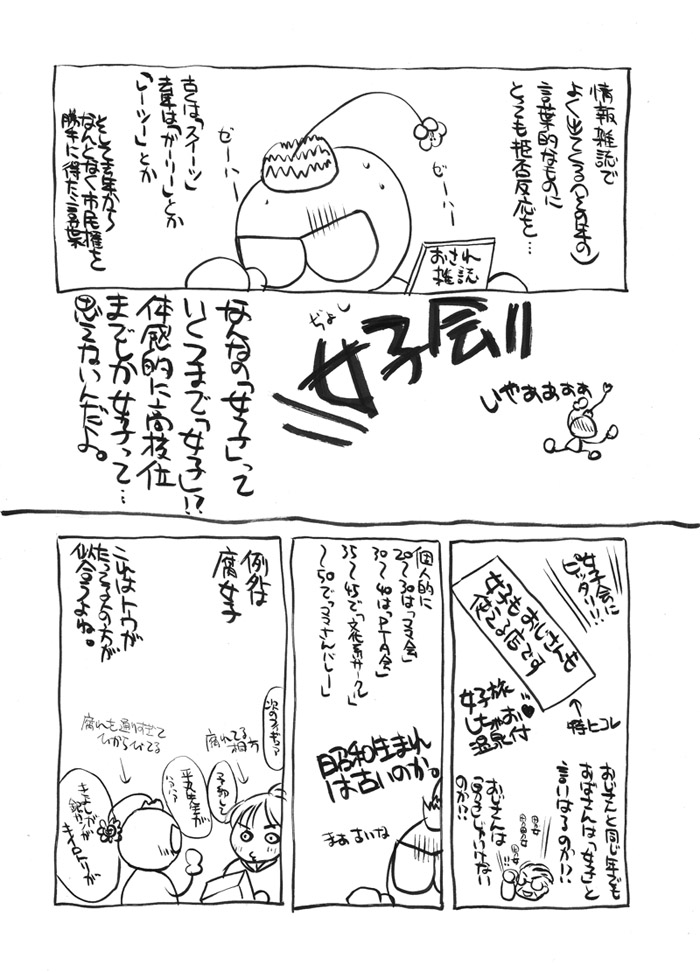 情報雑誌で
よく出てくる(その年の)
言葉的なものに
とっても拒否反応を…
ゼーハー
ゼーハー
おされ
雑誌
古くは「スイーツ」
去年は「ガーリー」とか
「レーツー」とか
そして去年から
なんとなく市民権を
勝手に得た言葉
ぢょし
女子会!!
いやぁぁぁぁ
なんなの「女子」って
いくつまで「女子」!?
体感的に高校位
までしか女子って…
思えないんだよ。
女子会に
ピッタリ!!!
女子もおじさんも
使える店です
↑
特にコレ
女子旅
しちゃお♥
温泉付
おじさんと同じ年でも
おばさんは「女子」と
言いはるのか?!
おじさんは
男子じゃいけない
のか?!
個人的に
20〜30は「ママ会」
30〜40は「PTA会」
35〜45で「文化系サークル」
〜50で「ママさんバレー」
昭和生まれ
は古いのか。
まぁ古いな
例外は
腐女子
これはトウが
たってる人の方が
似合うよね。
腐れも通りすぎて
ひからびてる
腐れてる
相方
次のフィギュア
予約して